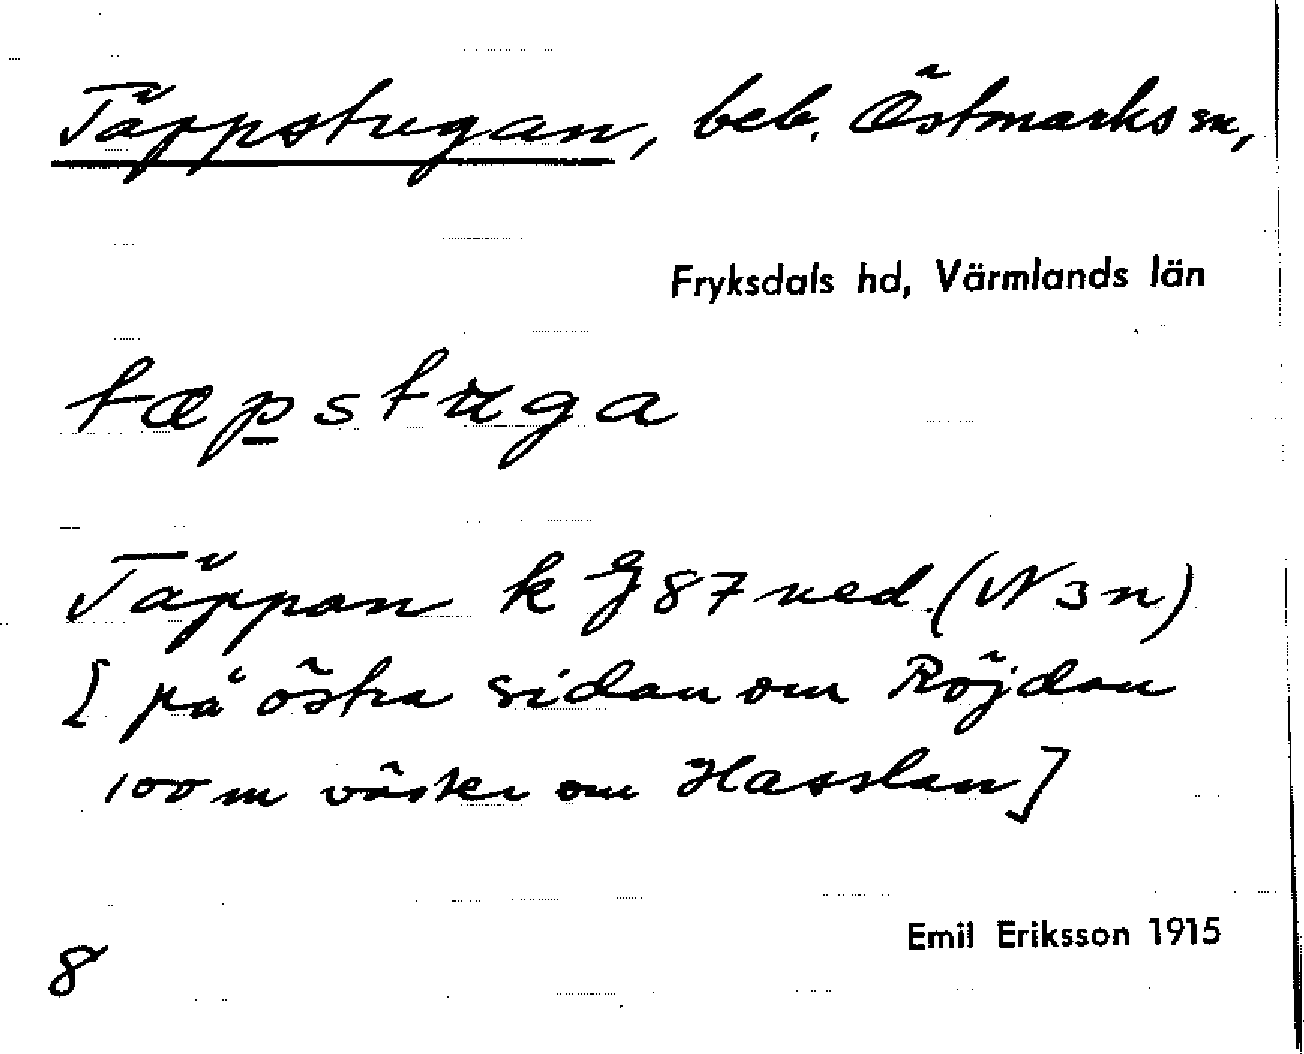 Täppstugan, beb. Östmarks sn,
Fryksdals hd, Värmlands län
tæpstuga
Täppan k G 87 ned. (W 3 n)
[ på östra sidan om Röjdan
100 m väster om Hasslan]
Emil Eriksson 1915
8